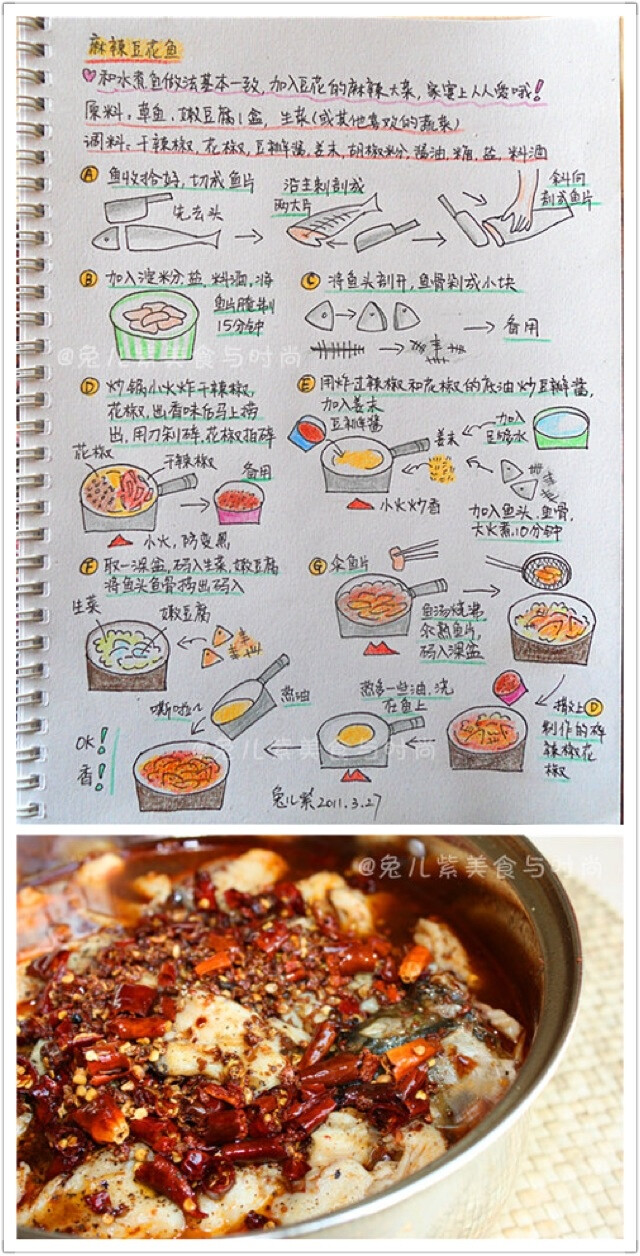 麻辣豆花鱼
和水煮鱼做法基本一致,加入豆花的麻辣大菜,家宴上人人爱哦!
原料:草鱼,嫩豆腐1盒,生菜(或其他喜欢的蔬菜)
调料:干辣椒,花椒,豆瓣酱,姜末,胡椒粉,酱油,糖,盐,料酒
A 鱼收拾好,切成鱼片
先去头
沿主刺剖成
两大片
斜向
剖成鱼片
B 加入淀粉,盐,料酒,将
鱼片腌制
15分钟
C 将鱼头剖开,鱼骨剁成小块
备用
@兔儿紫美食与时尚
D 炒锅小火炸干辣椒,
花椒,出香味后马上捞
出,用刀剁碎,花椒拍碎
花椒
干辣椒
备用
小火,防变黑
E 用炸过辣椒和花椒的底油炒豆瓣酱,
加入姜末
豆瓣酱
姜末
加入
足够水
小火炒香
加入鱼头,鱼骨,
大火煮10分钟
F 取一深盆,码入生菜,嫩豆腐
将鱼头鱼骨捞出码入
生菜
嫩豆腐
G 汆鱼片
鱼汤烧沸,
汆熟鱼片,
码入深盆
撒上D
制作的碎
辣椒花
椒
热多一些油,浇
在鱼上
热油
嘶啦~
OK!
香!
@兔儿紫美食与时尚
兔儿紫2011.3.27
@兔儿紫美食与时尚